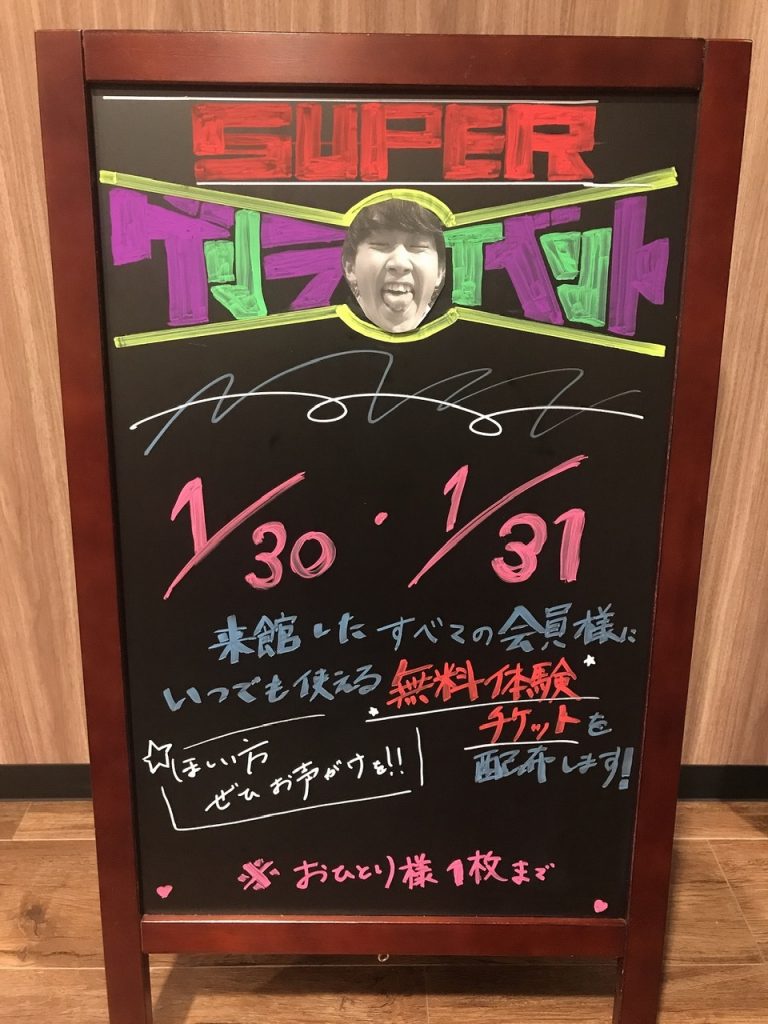 SUPER
ゲリライベント
1/30・1/31
来館したすべての会員様に
いつでも使える無料体験
チケットを
配布します!
☆ほしい方
ぜひお声がけを!!
※おひとり様1枚まで